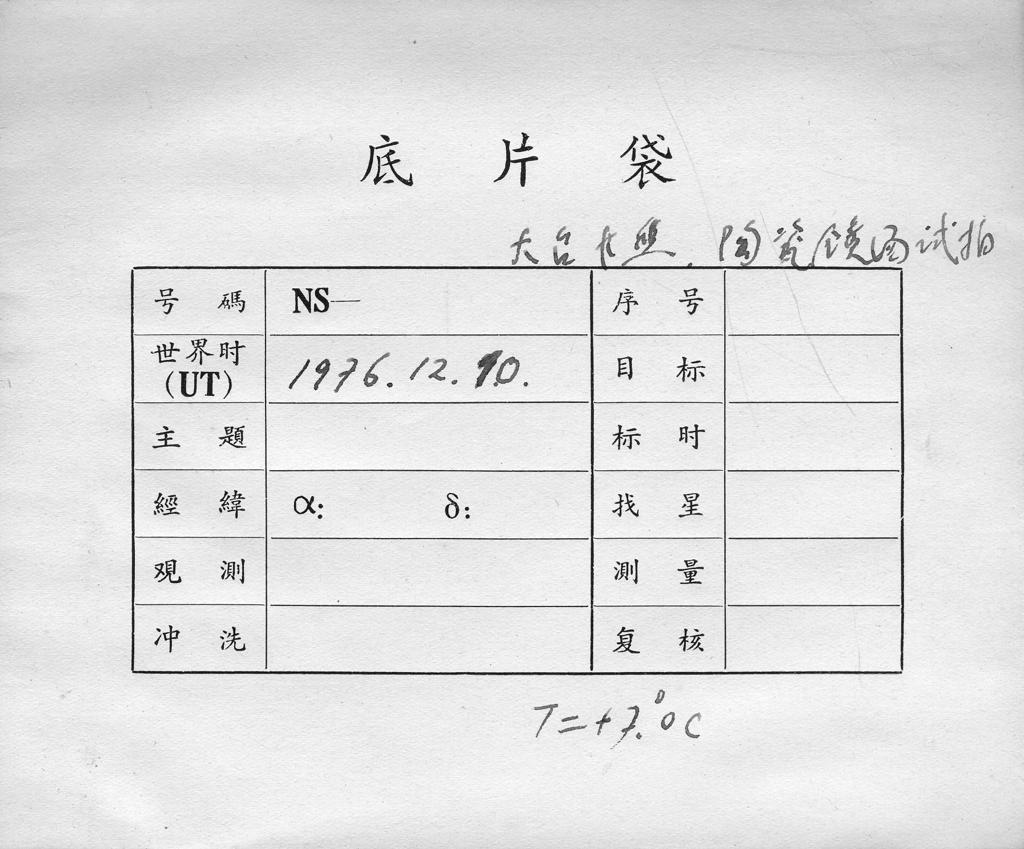 底片袋
大台 照. 陶瓷镜面试拍
号碼 NS— 序号
世界时(UT) 1976.12.10. 目标
主題 标时
經緯 α: δ: 找星
观測 測量
冲洗 复核
T=+7.°0C